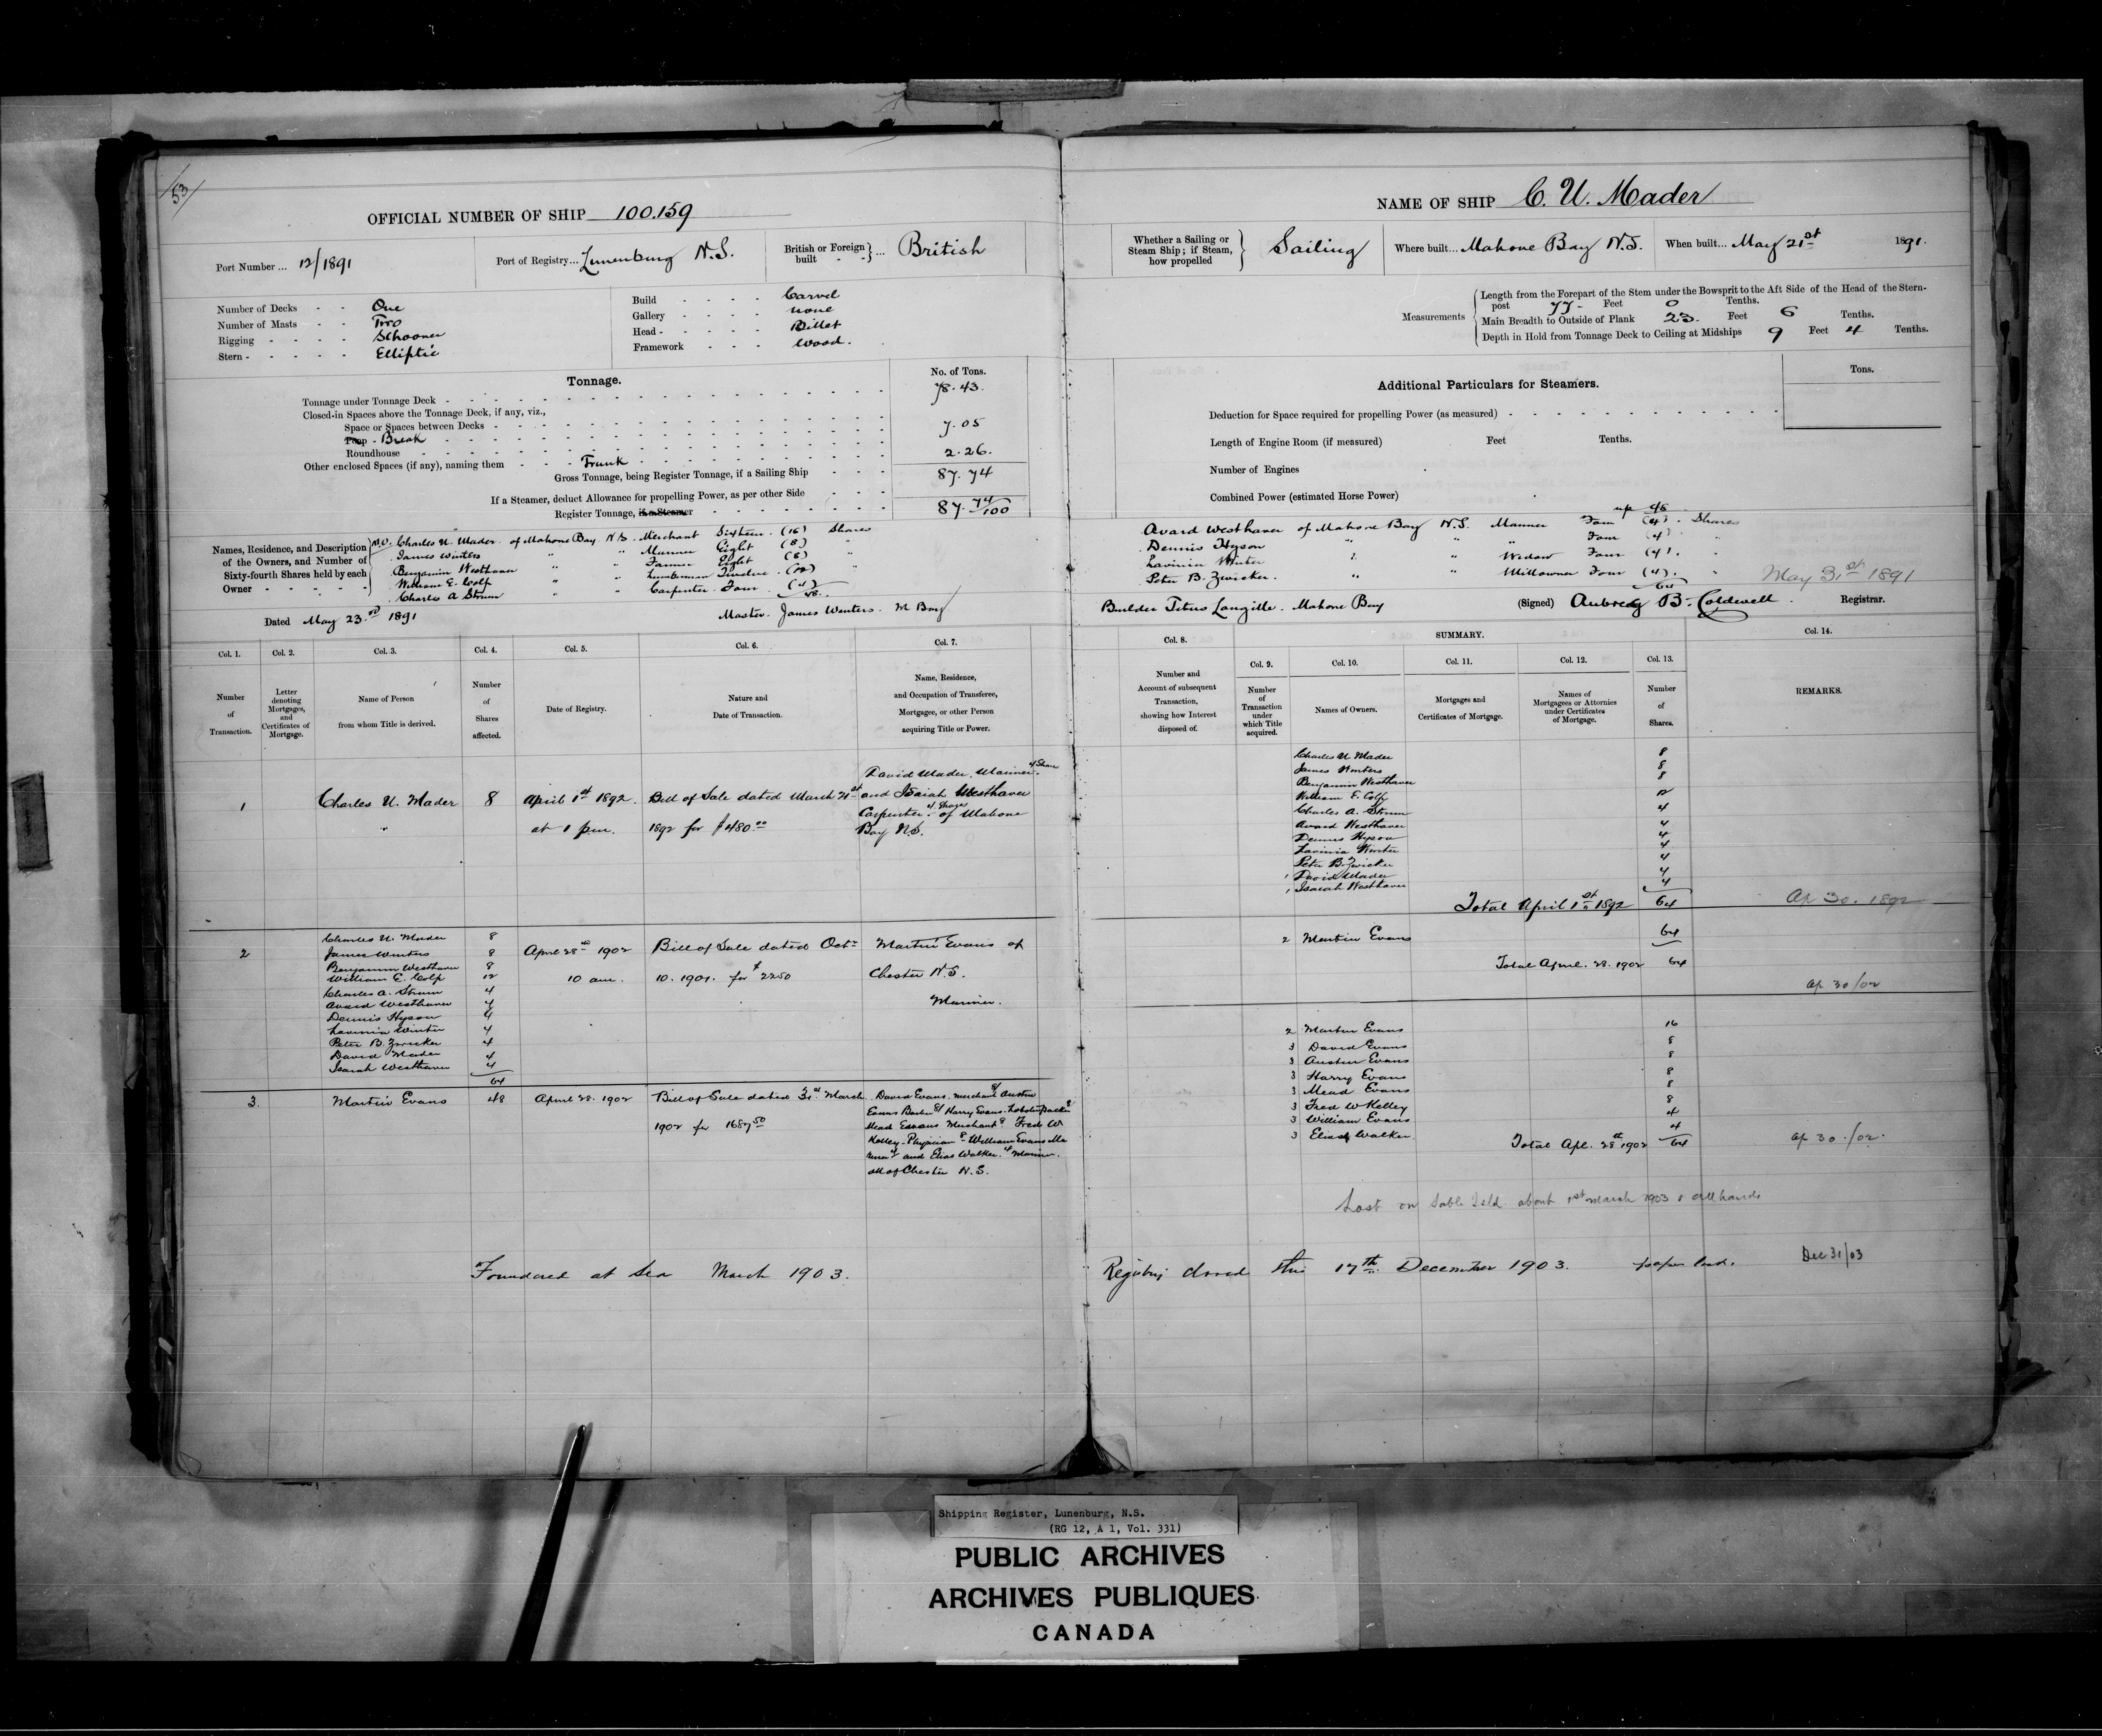 53
OFFICIAL NUMBER OF SHIP 100.159
Port Number ... 12/1891
Port of Registry... Lunenburg N.S.
British or Foreign built - - } ... British
Number of Decks - - One
Number of Masts - - Two
Rigging - - - - Schooner
Stern - - - - - Elliptic
Build - - - - Carvel
Gallery - - - - none
Head - - - - - Billet
Framework - - - Wood.
Tonnage.
No. of Tons.
Tonnage under Tonnage Deck - 78.43.
Closed-in Spaces above the Tonnage Deck, if any, viz.,
Space or Spaces between Decks -
Poop - Break 7.05
Roundhouse
Other enclosed Spaces (if any), naming them - - - Trunk 2.26.
Gross Tonnage, being Register Tonnage, if a Sailing Ship - - - 87.74
If a Steamer, deduct Allowance for propelling Power, as per other Side - - -
Register Tonnage, if a Steamer 87. 74/100
Names, Residence, and Description of the Owners, and Number of Sixty-fourth Shares held by each Owner - - - - -
M.O. Charles U. Mader of Mahone Bay N.S. Merchant Sixteen (16) Shares
James Winters " " Mariner Eight (8) "
Benjamin Westhaver " " Farmer Eight (8) "
William E. Colp " " Lumberman Twelve (12) "
Charles A Strum " " Carpenter Four (4)
48.
Dated May 23rd 1891
Master. James Winters. M Bay
Col. 1.
Number of Transaction.
Col. 2.
Letter denoting Mortgages, and Certificates of Mortgage.
Col. 3.
Name of Person from whom Title is derived.
Col. 4.
Number of Shares affected.
Col. 5.
Date of Registry.
Col. 6.
Nature and Date of Transaction.
Col. 7.
Name, Residence, and Occupation of Transferee, Mortgagee, or other Person acquiring Title or Power.
1 Charles U. Mader 8 April 1st 1892. Bill of Sale dated March 21st
" at 1 p.m. 1892 for $480.00
David Mader, Mariner 4 Shares
and Isaiah Westhaver
Carpenter 4 Shares of Mahone
Bay N.S.
2
Charles U. Mader 8
James Winters 8
Benjamin Westhaver 8
William E. Colp 12
Charles A. Strum 4
Avard Westhaver 4
Dennis Hyson 4
Lavinia Winter 4
Peter B. Zwicker 4
David Mader 4
Isaiah Westhaver 4
64
April 28th 1902
10 am.
Bill of Sale dated Oct
10. 1901. for $2250
Martin Evans of
Chester N.S.
Mariner.
3. Martin Evans 48 April 28. 1902 Bill of Sale dated 31st March
1902 for 1687.50
David Evans, merchant 8/ Austin
Evans 8/ Harry Evans. Lobster Packer 8
Mead Evans Merchant 8 Fred W
Kelley - Physician 8 - William Evans Ma
riner 4 and Elias Walker. 4 Mariner.
all of Chester N.S.
Foundered at Sea March 1903.
NAME OF SHIP C. U. Mader
Whether a Sailing or Steam Ship; if Steam, how propelled } Sailing
Where built... Mahone Bay N.S.
When built... May 21st 1891.
Measurements
Length from the Forepart of the Stem under the Bowsprit to the Aft Side of the Head of the Stern-
post 77 - Feet 0 Tenths.
Main Breadth to Outside of Plank 23. Feet 6 Tenths.
Depth in Hold from Tonnage Deck to Ceiling at Midships 9 Feet 4 Tenths.
Additional Particulars for Steamers.
Tons.
Deduction for Space required for propelling Power (as measured)
Length of Engine Room (if measured) Feet Tenths.
Number of Engines
Combined Power (estimated Horse Power)
up 48
Avard Westhaver of Mahone Bay N.S. Mariner Four (4). Shares
Dennis Hyson " " " Four (4) "
Lavinia Winter " " Widow Four (4). "
Peter B. Zwicker. " " Millowner Four (4). "
64
May 31st 1891
Builder Titus Langille. Mahone Bay
(Signed) Aubrey B. Coldwell. Registrar.
Col. 8.
Number and Account of subsequent Transaction, showing how Interest disposed of.
SUMMARY.
Col. 9.
Number of Transaction under which Title acquired.
Col. 10.
Names of Owners.
Col. 11.
Mortgages and Certificates of Mortgage.
Col. 12.
Names of Mortgagees or Attorneys under Certificates of Mortgage.
Col. 13.
Number of Shares.
Col. 14.
REMARKS.
Charles U Mader 8
James Winters 8
Benjamin Westhaver 8
William E. Colp 12
Charles A. Strum 4
Avard Westhaver 4
Dennis Hyson 4
Lavinia Winter 4
Peter B. Zwicker 4
1 David Mader 4
1 Isaiah Westhaver 4
Total April 1st 1892 64
Ap 30. 1892
2 Martin Evans 64
Total April. 28. 1902 64
Ap 30/02
2 Martin Evans 16
3 David Evans 8
3 Austin Evans 8
3 Harry Evans 8
3 Mead Evans 8
3 Fred W Kelley 8
3 William Evans 4
3 Elias Walker 4
Total Apl. 28th 1902 64
Ap 30./02.
Lost on Sable Isld. about 1st March 1903 & all hands
Registry closed this 17th December 1903. papers lost.
Dec 31/03
Shipping Register, Lunenburg, N.S.
(RG 12, A 1, Vol. 331)
PUBLIC ARCHIVES
ARCHIVES PUBLIQUES
CANADA